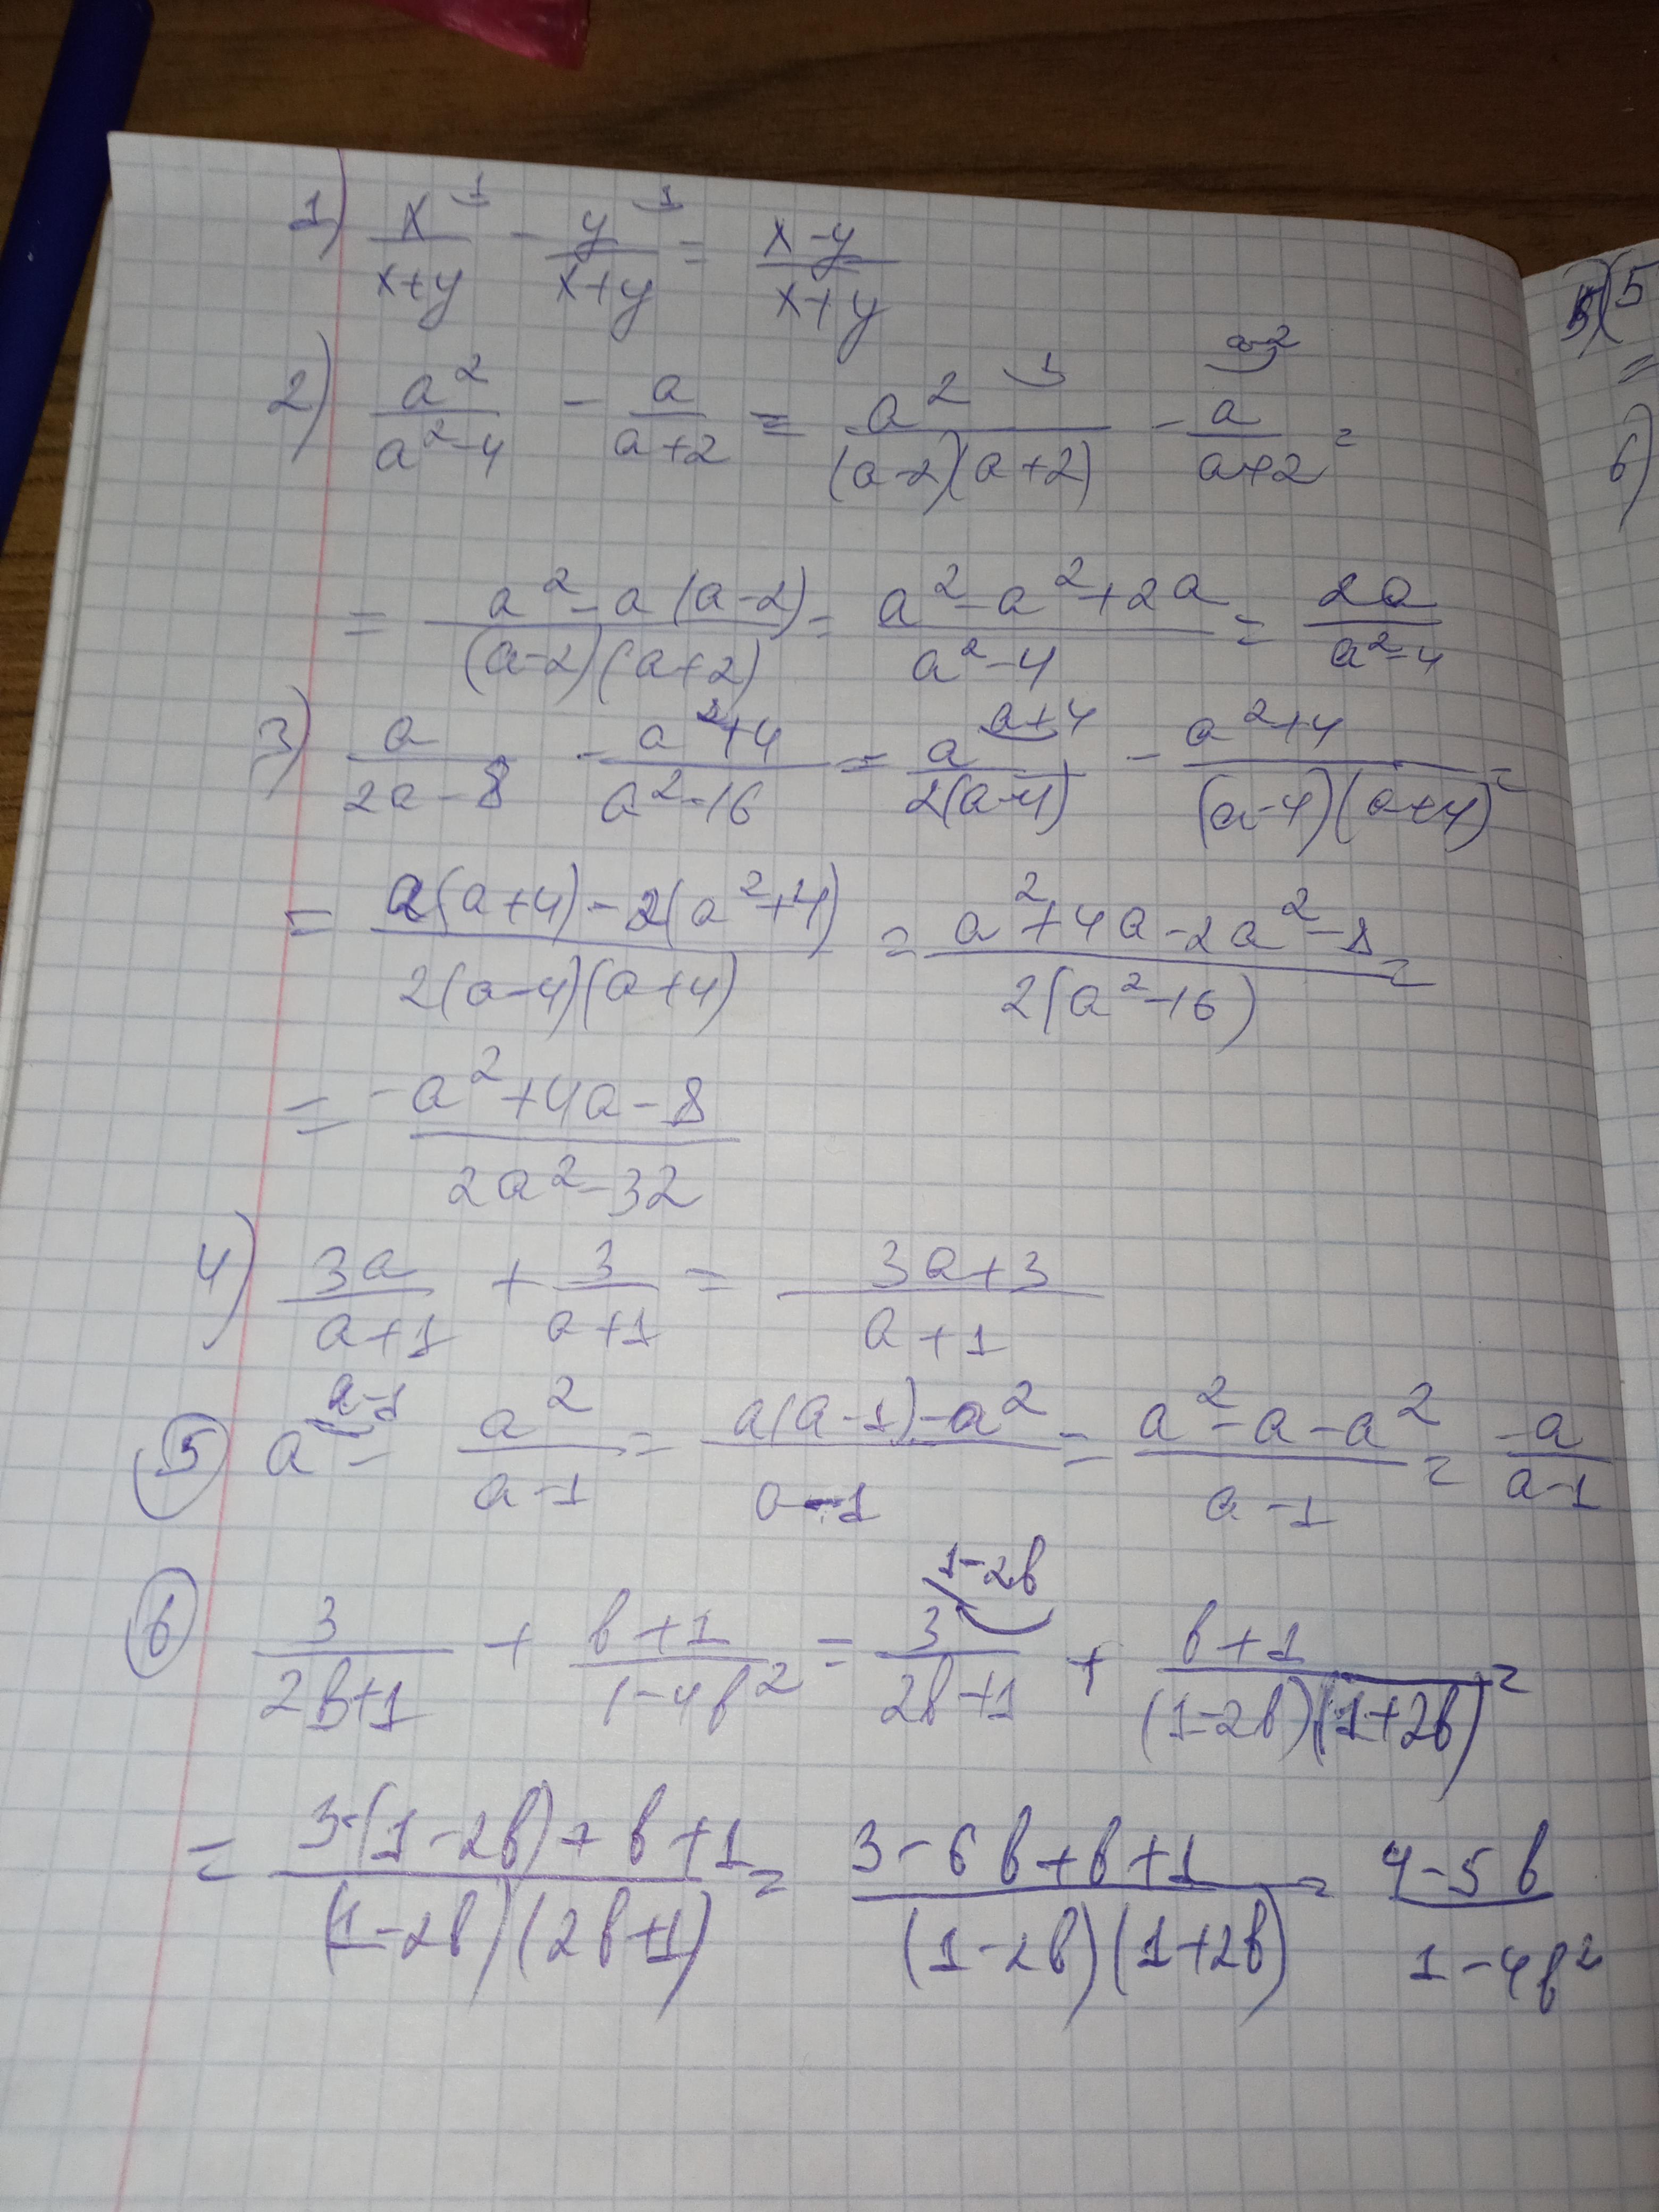 1) x/(x+y) ^1 - y/(x+y) ^1 = (x-y)/(x+y)
2) a²/(a²-4) - a/(a+2) = a²/((a-2)(a+2)) ^1 - a/(a+2) ^a-2 =
= (a²-a(a-2))/((a-2)(a+2)) = (a²-a²+2a)/(a²-4) = 2a/(a²-4)
3) a/(2a-8) - (a²+4)/(a²-16) = a/(2(a-4)) ^a+4 - (a²+4)/((a-4)(a+4)) =
= (a(a+4)-2(a²+4))/(2(a-4)(a+4)) = (a²+4a-2a²-8)/(2(a²-16)) =
= (-a²+4a-8)/(2a²-32)
4) 3a/(a+1) + 3/(a+1) = (3a+3)/(a+1)
5) a ^a-1 - a²/(a-1) = (a(a-1)-a²)/(a-1) = (a²-a-a²)/(a-1) = -a/(a-1)
6) 3/(2b+1) + (b+1)/(1-4b²) = 3/(2b+1) ^1-2b + (b+1)/((1-2b)(1+2b)) =
= (3·(1-2b)+b+1)/((1-2b)(2b+1)) = (3-6b+b+1)/((1-2b)(1+2b)) = (4-5b)/(1-4b²)
(5
=
6)